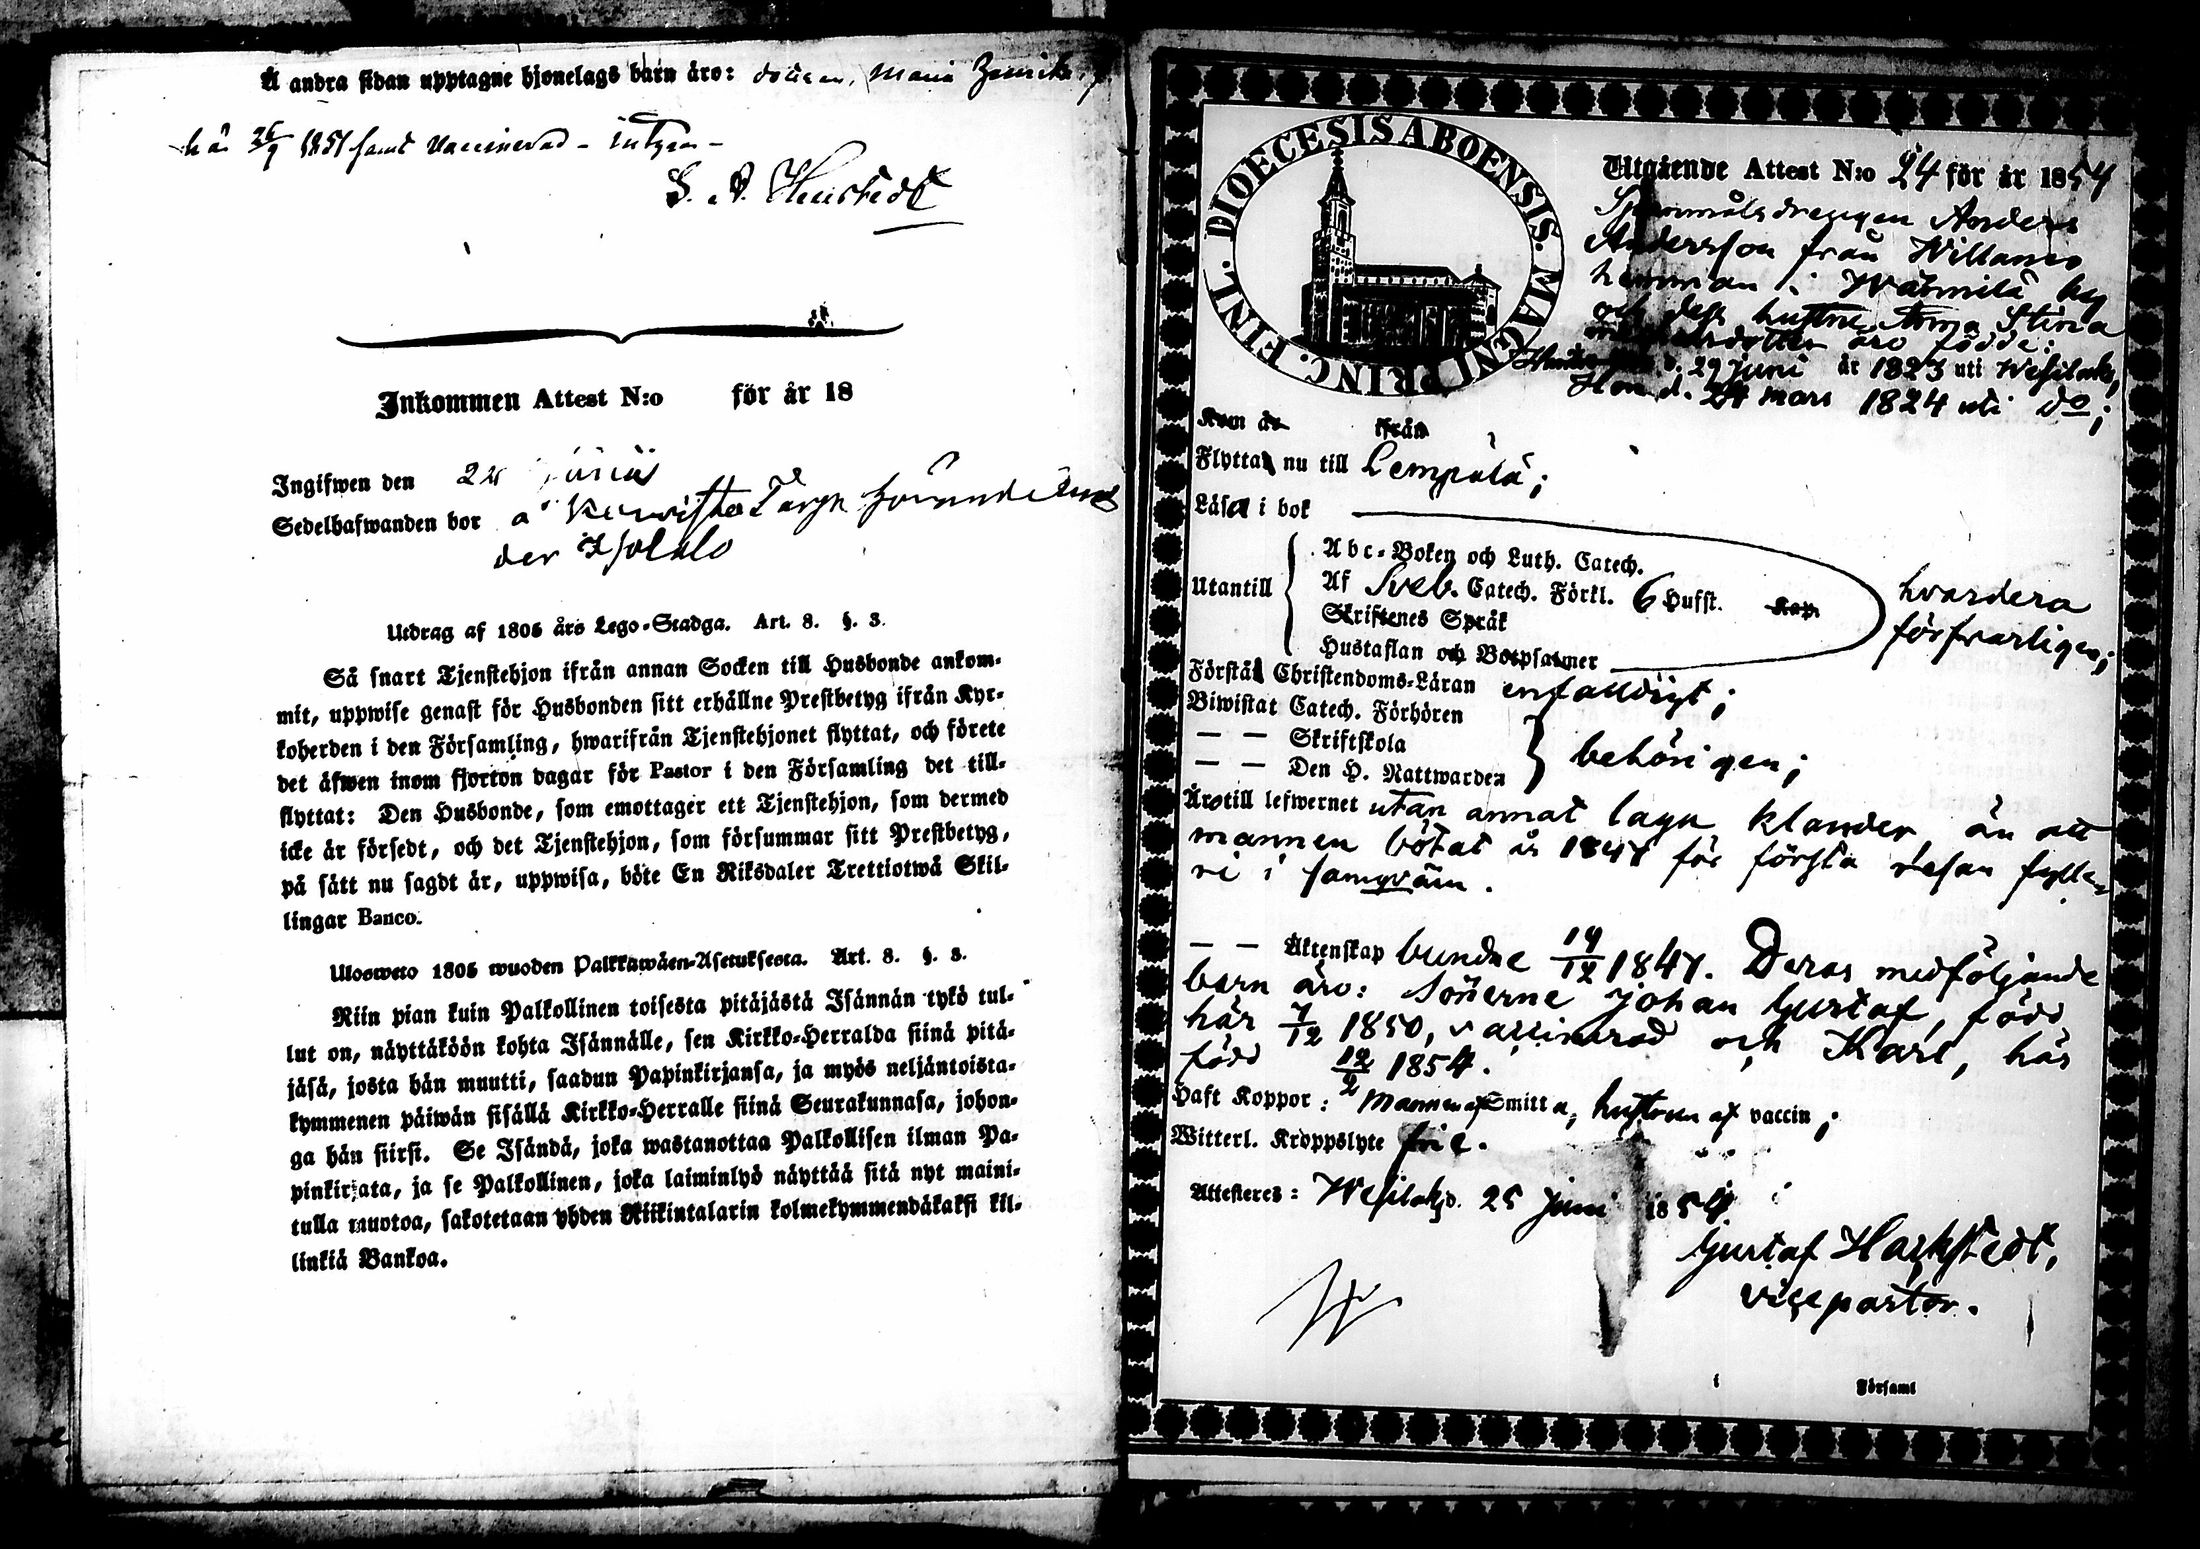 Å andra sidan upptagne hjonelags barn äro: Maria
1851 samt vaccinerad –
Inkommen Attest N:o för år 18
Ingifwen den
Sedelhafwanden bor å
der
Utdrag af 1805 års Lego-Stadga. Art. 8. §. 3.
Så snart Tjenstehjon ifrån annan Socken till Husbonde ankom-
mit, uppwise genast för Husbonden sitt erhållne Prestbetyg ifrån Kyr-
koherden i den Församling, hwarifrån Tjenstehjonet flyttat, och förete
det äfwen inom fjorton dagar för Pastor i den Församling det till-
flyttat: Den Husbonde, som emottager ett Tjenstehjon, som dermed
icke är försedt, och det Tjenstehjon, som försummar sitt Prestbetyg,
på sätt nu sagdt är, uppwisa, böte En Riksdaler Trettiotwå Skil-
lingar Banco.
Ulosweto 1805 wuoden Palkkawäen-Asetuksesta. Art. 8. §. 3.
Niin pian kuin Palkollinen toisesta pitäjästä Isännän tykö tul-
lut on, näyttäköön kohta Isännälle, sen Kirkko-Herralda siinä pitä-
jäsä, josta hän muutti, saadun Papinkirjansa, ja myös neljäntoista-
kymmenen päiwän sisällä Kirkko-Herralle siinä Seurakunnasa, johon-
ga hän siirsi. Se Isändä, joka wastanottaa Palkollisen ilman Pa-
pinkirjata, ja se Palkollinen, joka laiminlyö näyttää sitä nyt maini-
tulla muotoa, sakotetaan yhden Riikintalarin kolmekymmendäkaksi kil-
linkiä Bankoa.
DIOECESIS ABOENSIS. MAGNI PRINC. FINL.
Utgående Attest N:o 24 för år 1854
Anders
Andersson från Willamo
hemman i by
och dess hustru Anna Stina
äro födde:
d. 29 juni år 1823 uti Wesilaks,
Hon d. 24 mars 1824 uti do;
Kom år ifrån
Flytta nu till Lempälä;
Läsa i bok
Abc-Boken och Luth. Catech.
Utantill Af Sveb. Catech. Förkl. 6 Hufst. Kap. hvardera
Skriftenes Språk försvarligen;
Hustaflan och Botpsalmer
Förstå Christendoms-Läran enfaldigt;
Biwistat Catech. Förhören
— — Skriftskola behörigen;
— — Den H. Nattwarden
Äro till lefwernet utan annat lagn klander, än att
mannen bötat år 1847 för första resan fylle-
ri i samqväm.
— — Äktenskap bundne 19/12 1847. Deras medföljande
barn äro: sönerne Johan Gustaf, född
här 7/12 1850, vaccinerad och Karl, här
född 12/2 1854.
Haft Koppor: Mannen af Smitta, hustrun af vaccin;
Witterl. Kroppslyte frie.
Attesteres: Wesilaks d. 25 juni 1854
Gustaf Hackstedt,
vicepastor.
i Församl